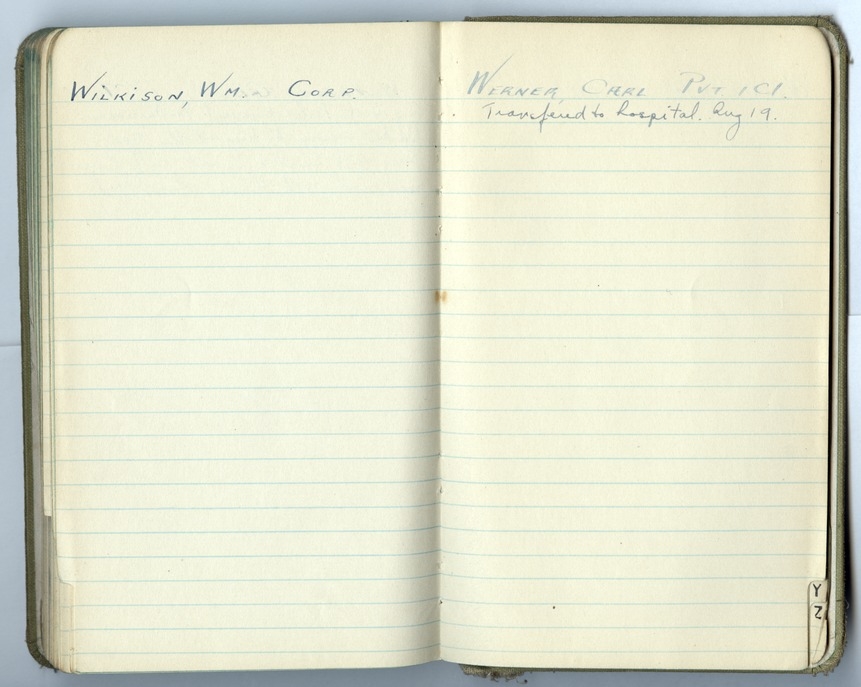 Wilkison, Wm. Corp.
Werner, Carl Pvt. 1Cl.
Transfered to hospital. Aug 19.
Y
Z